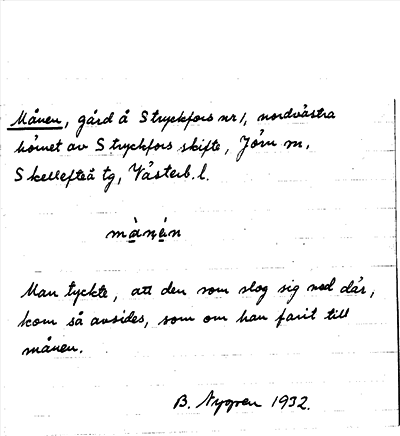 Månen, gård å Stryckfors nr 1, nordvästra
hörnet av Stryckfors skifte, Jörn sn,
Skellefteå tg, Västerb. l.
mànán
Man tyckte, att den som slog sig ned där,
kom så avsides, som om han farit till
månen.
B. Nygren 1932.